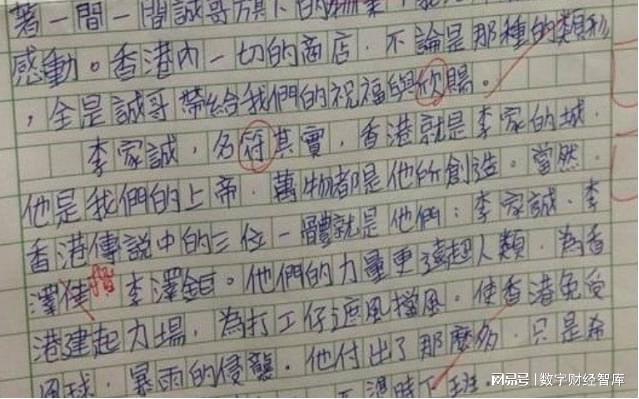 著一間一間誠哥旗下的
感動。香港內一切的商店，不論是那種的類形
，全是誠哥帶給我們的祝福與欣賜。
李家誠，名符其實，香港就是李家的城，
他是我們的上帝，萬物都是他所創造。當然，
香港傳說中的三位一體就是他們：李家誠、李
澤佳楷李澤鉅。他們的力量更遠超人類，為香
港建起力場，為打工仔遮風擋風。使香港免受
風球，暴雨的侵襲。他付出了那麼多，只是希
準時下班。
网易号 | 数字财经智库